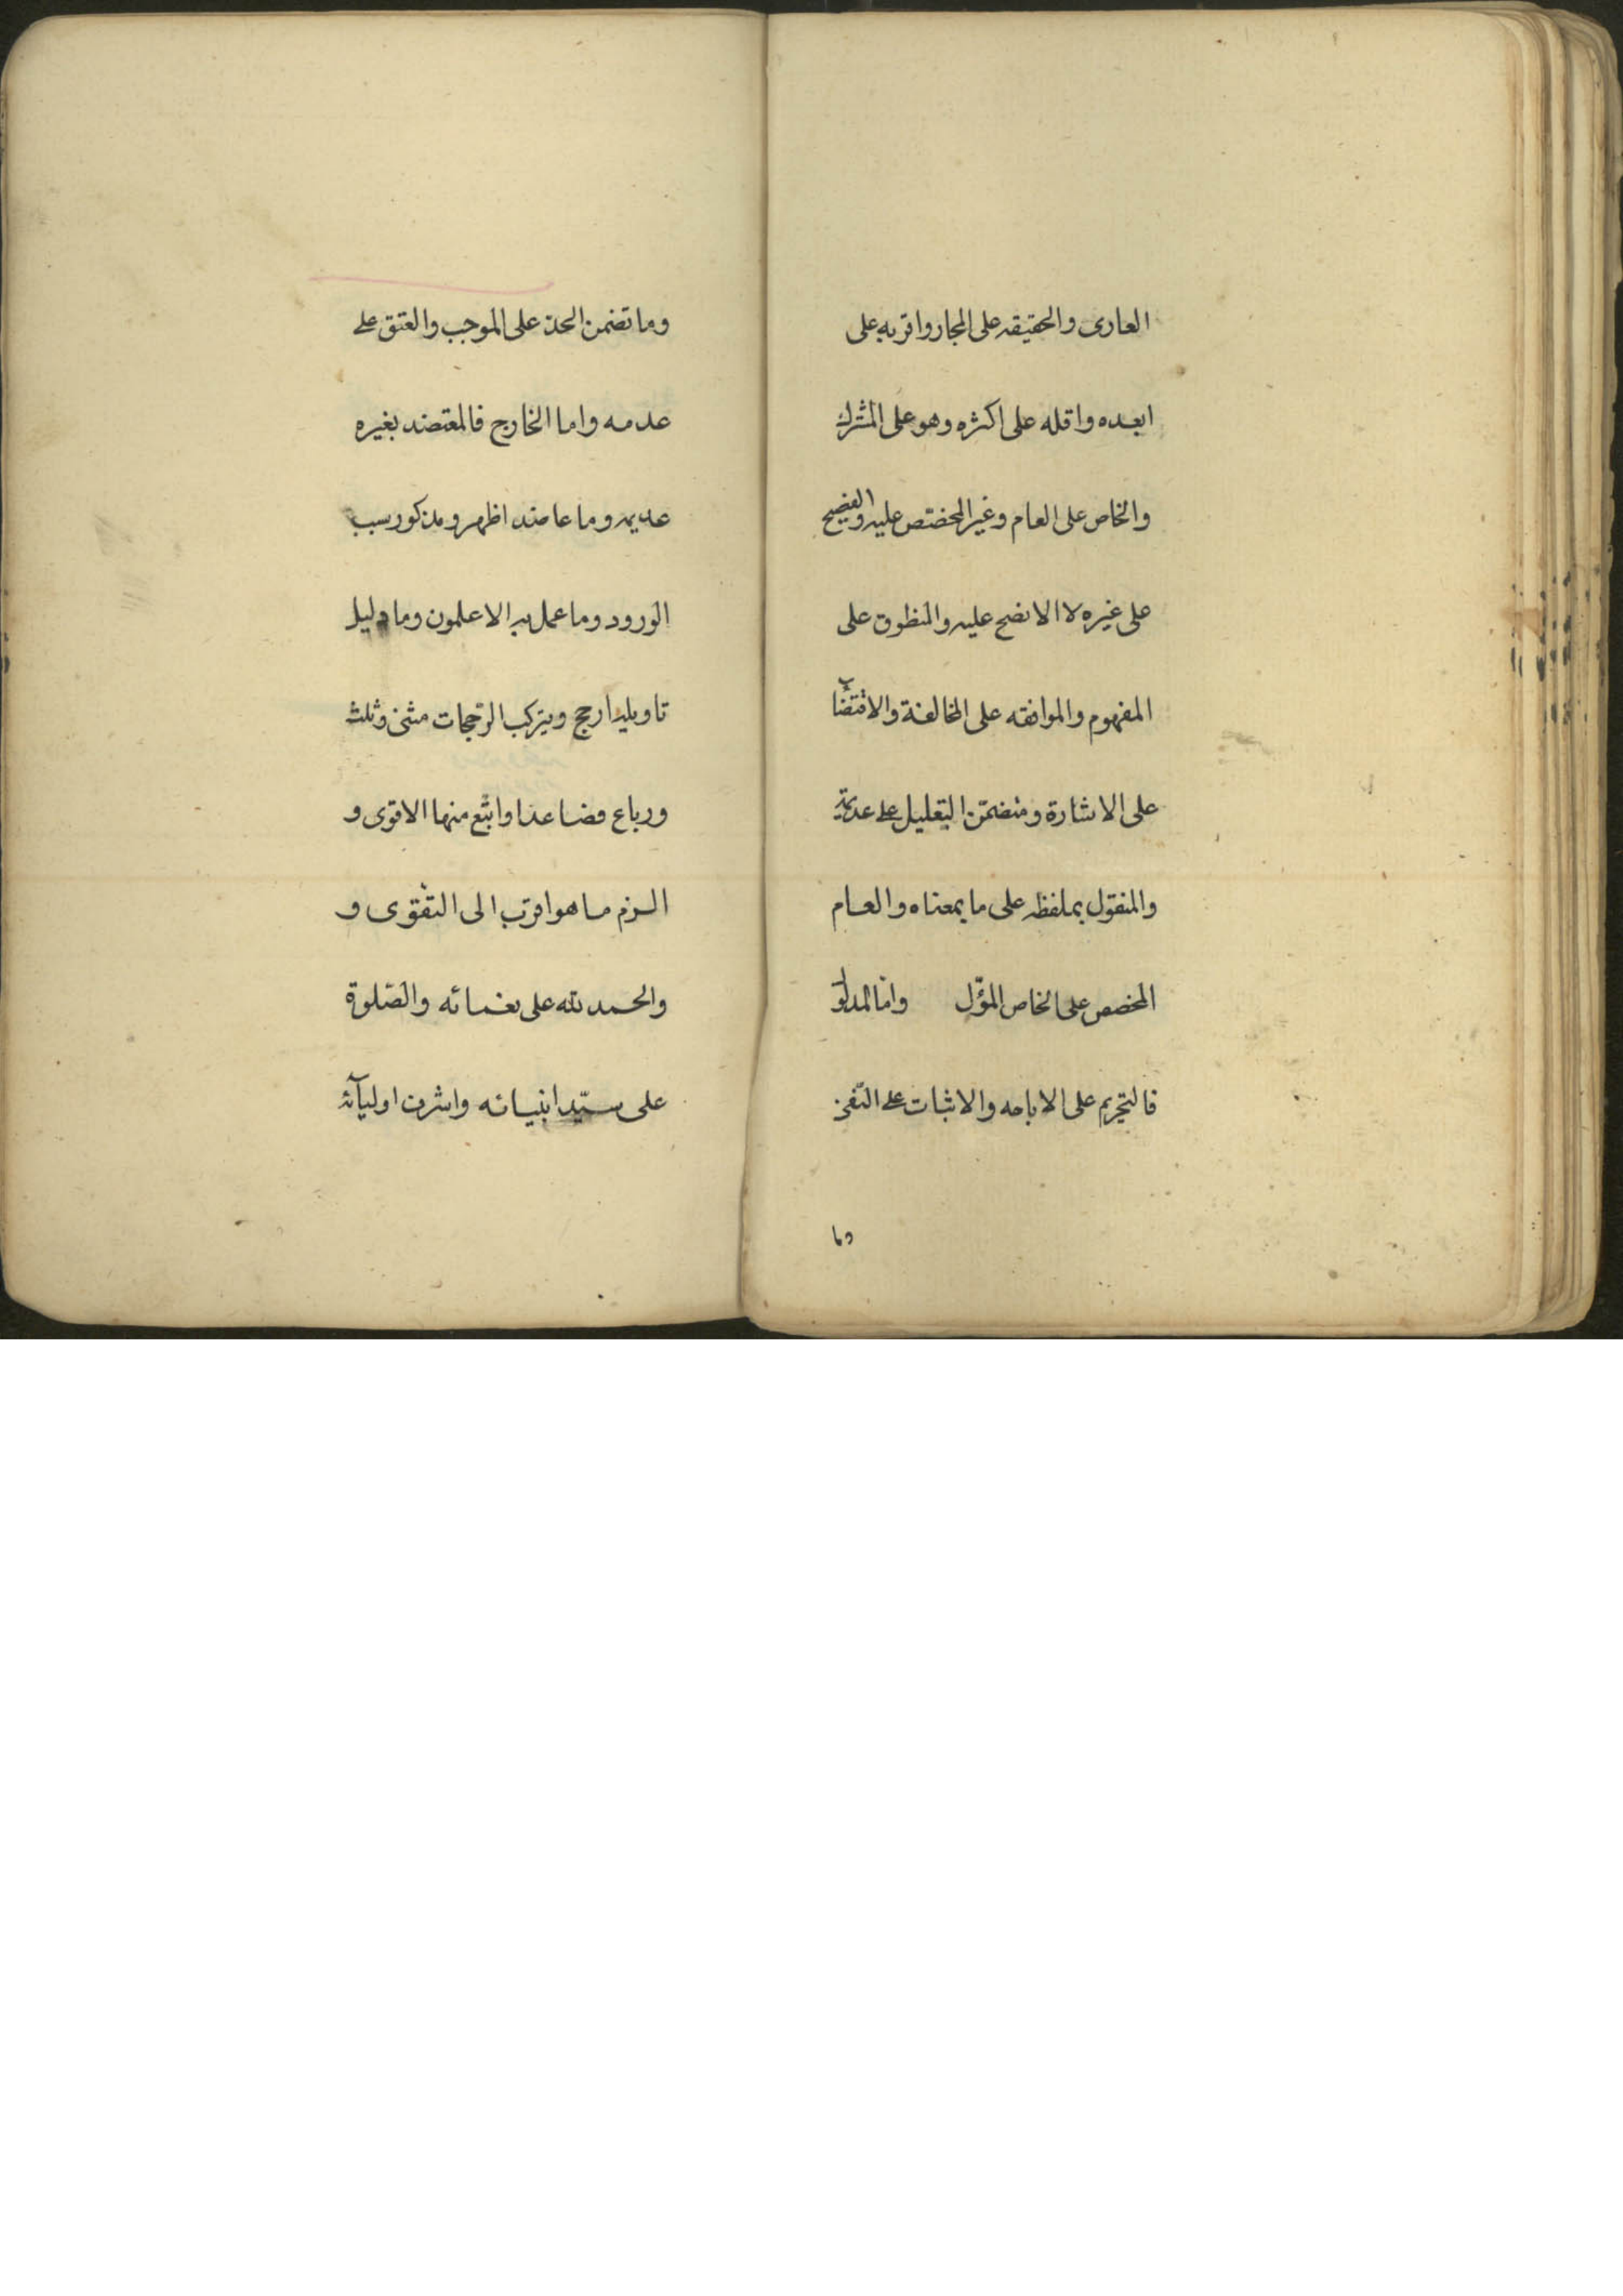 العاری والحقیقه على المجاز واقربه على
ابعده واقله على اكثره وهو على المشترك
والخاص على العام وغير المخصص عليه والفصیح
على غيره لا الافصح عليه والمنطوق على
المفهوم والموافقه على المخالفة والاقتضا
على الاشارة ومتضمن التعليل على عديمه
والمنقول بلفظه على ما بمعناه والعام
المخصص على الخاص المؤل واما المدلو
فالتحريم على الاباحه والاثبات على النفی
وما
وما تضمن الحد على الموجب والعتق على
عدمه واما الخارج فالمعتضد بغيره
عديمه وما عاضده اظهر ومذكور سبب
الورود وما عمل به الاعلمون وما دليل
تاويله ارجح ويتركب الرجحات مثنى وثلث
ورباع فصاعدا واتبع منها الاقوى و
الزم ما هو اقرب الى التقوى و
والحمد لله على نعمائه والصلوة
على سيد انبيائه واشرف اوليائه